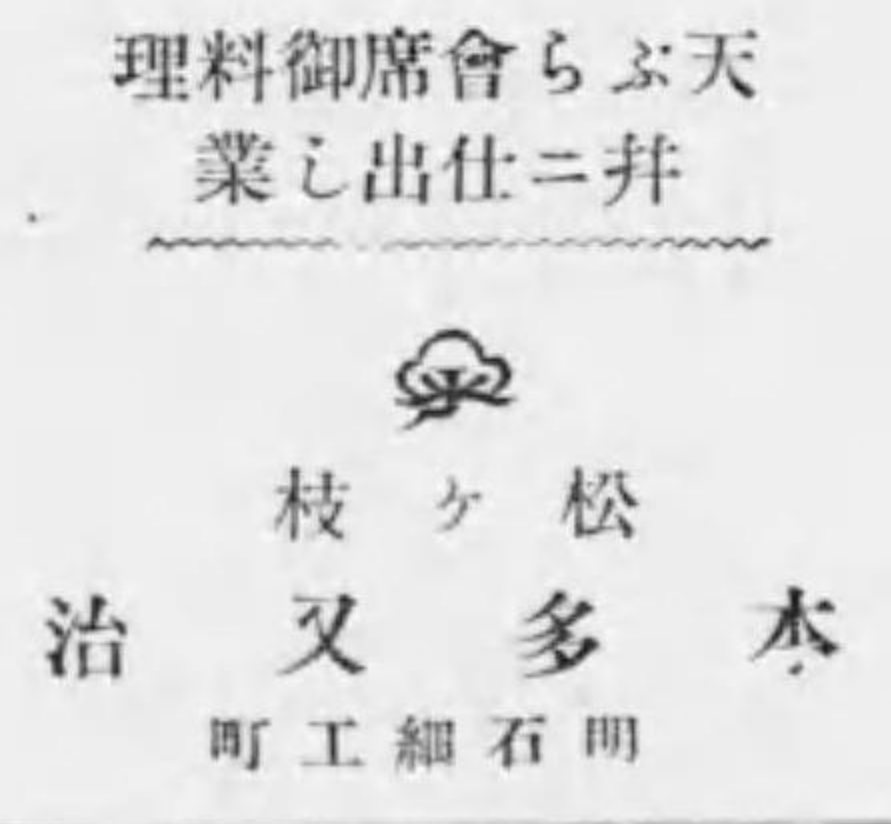 天ぶら會席御料理
幷ニ仕出し業
松ヶ枝
本多又治
明石細工町